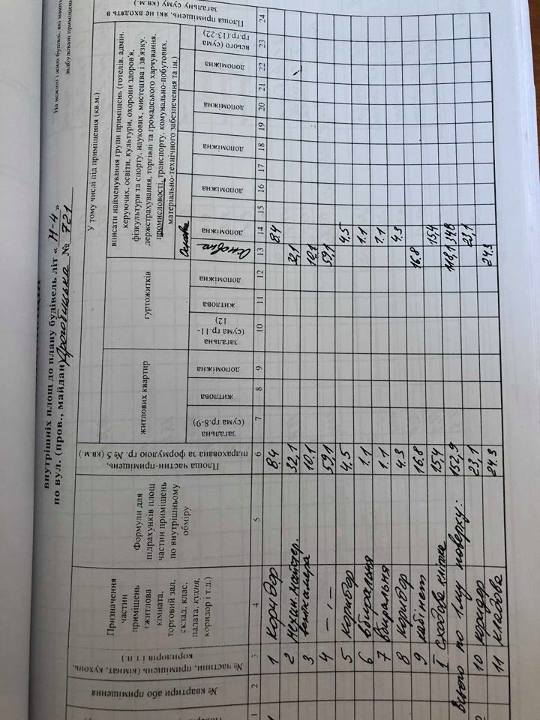 внутрішніх площ до плану будівель літ « Н-4 »
по вул. (пров., майдан) Дрогобицька № 721
№ квартири або приміщення
№ частини, приміщень (кімнат, кухонь, коридорів і т.п.)
Призначення частин приміщень (житлова кімната, торговий зал, склад, клас, палата, кухня, коридор і т.д.)
Формули для підрахунків площ частин приміщень по внутрішньому обміру
Площа частин-приміщень, підрахована за формулою гр. № 5 (кв.м.)
У тому числі під приміщення (кв.м.)
житлових квартир
загальна (сума гр.8-9)
житлова
допоміжна
гуртожитків
загальна (сума гр.11-12)
житлова
допоміжна
вписати найменування групи приміщень (готелів, адмін. керуючих, освіти, культури, охорони здоров'я, фізкультури та спорту, наукових, мистецтва і зв'язку, держстрахування, торгівлі та громадського харчування, промисловості, транспорту, комунально-побутових, матеріально-технічного забезпечення та ін.)
Основна
допоміжна
допоміжна
допоміжна
допоміжна
допоміжна
всього (сума гр.13-22)
Площа приміщень, які не входять в загальну суму (кв.м.)
1 2 3 4 5 6 7 8 9 10 11 12 13 14 15 16 17 18 19 20 21 22 23 24
1 Коридор 8,4 8,4
2 32,1 32,1
3 10,1 10,1
4 -,- 59,1 59,1
5 коридор 4,5 4,5
6 вбиральня 1.1 1.1
7 вбиральня 1.1 1.1
8 коридор 4.3 4.3
9 кабінет 16.8 16.8
I сходова клітка 15,4 15,4
Всього по 1му поверху: 152,9 118,1 34,8
10 коридор 23,1 23,1
11 кладова 24.3 24.3